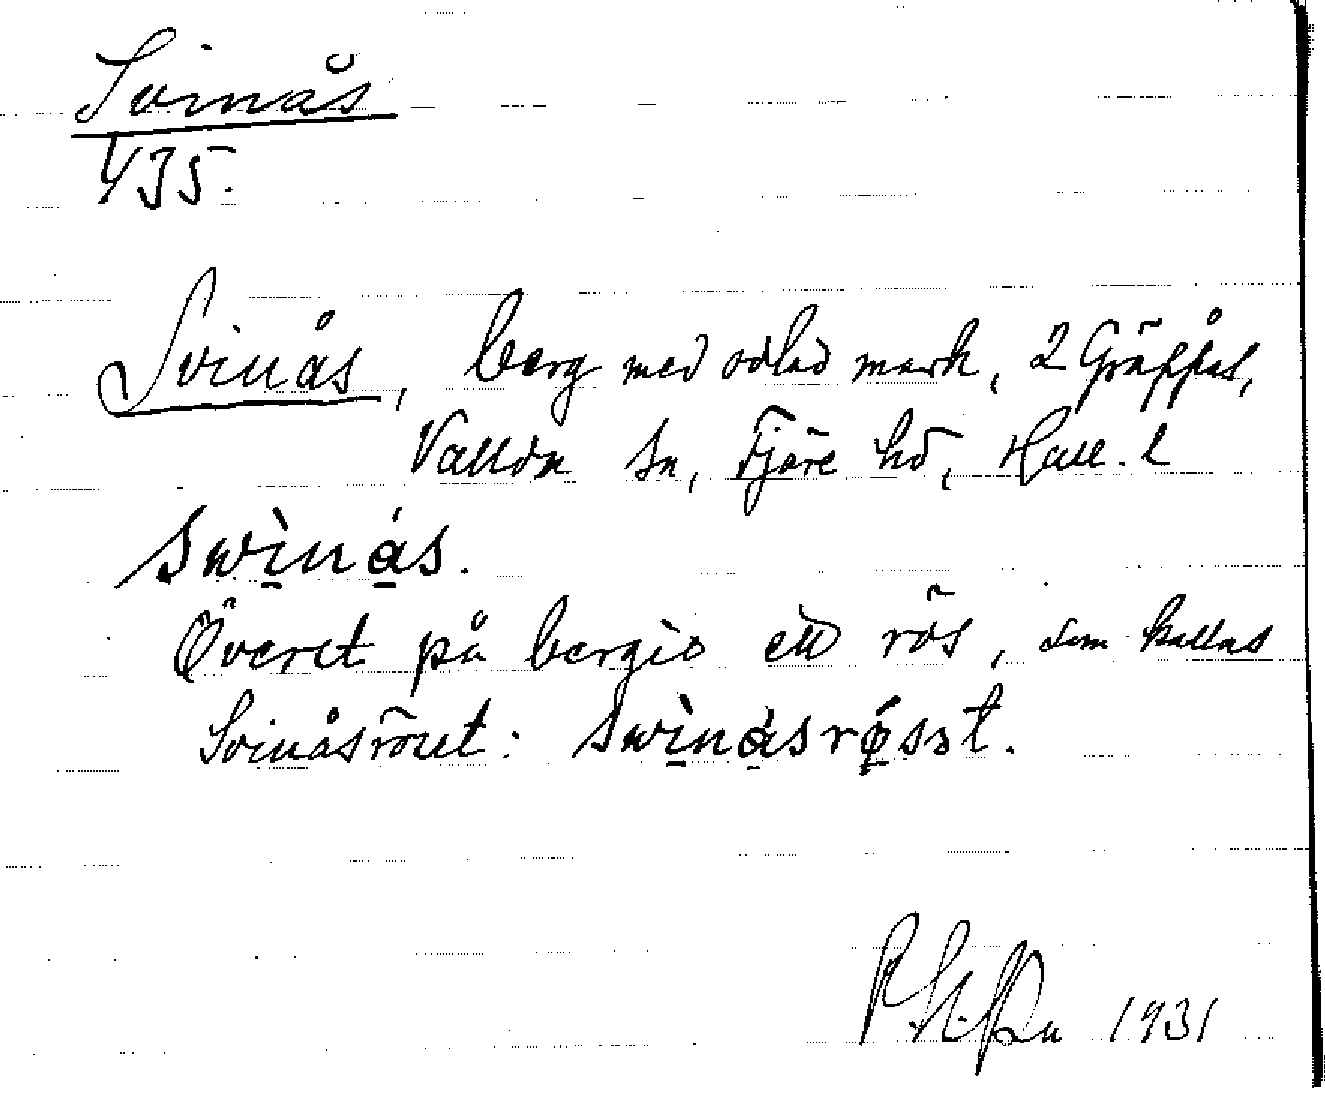 Svinås
435.
Svinås, berg med odlad mark, 2 Gräppås,
Vallda sn, Fjäre hd, Hall. l
swìnás.
Överst på berget ett rös, som kallas
Svinåsröset: swìnásrǿsət.
1931